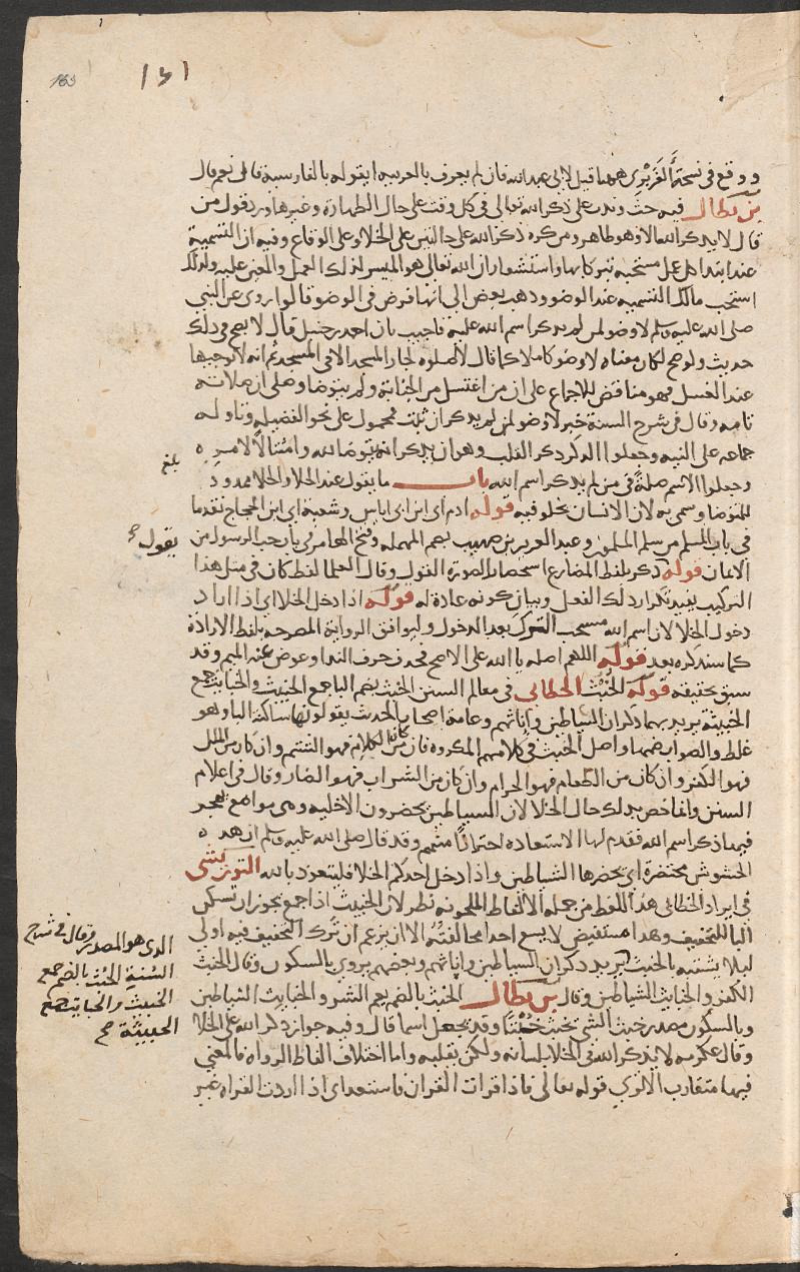 163
ووقع في نسخة الفربري ههنا قيل لابي عبد الله فان لم يعرف بالعربية ايقوله بالفارسية قال نعم قال
بن بطال فيه حث وندب على ذكر الله تعالى في كل وقت على حال الطهارة وغيرها ورد قول من
قال لا يذكر الله الا وهو طاهر ومن كره ذكر الله على حالتين على الخلاء وعلى الوقاع وفيه ان التسمية
عند ابتدا كل عمل مستحبة تبركا بها واستشعارا ان الله تعالى هو الميسر لذلك العمل والمعين عليه ولذلك
استحب مالك التسمية عند الوضو وذهب بعض الى انها فرض في الوضو قالوا روي عن النبي
صلى الله عليه وسلم لا وضو لمن لم يذكر اسم الله عليه فاجيب بان احمد بن حنبل قال لا يصح في ذلك
حديث ولو صح لكان معناه لا وضو كاملا كما قال لا صلوة لجار المسجد الا في المسجد ثم انه لا توجبها
عند الغسل فهو مناقض للاجماع على ان من اغتسل من الجنابة ولم يتوضا وصلى ان صلاته
تامة وقال في شرح السنة خبر لا وضو لمن لم يذكر ان ثبت محمول على نحو الفضيلة وتاوله
جماعة على النية وجعلوا الذكر ذكر القلب وهو ان يذكر انه يتوضا لله وامتثالا لامره
وجعلوا الاسم صلة في من لم يذكر اسم الله باب ما يقول عند الخلا والخلا ممدود
بلغ
للمتوضا وسمي به لان الانسان يخلو فيه قوله ادم اي ابن ابي اياس وشعبة اي ابن الحجاج تقدما
في باب المسلم من سلم المسلمون وعبد العزيز بن صهيب بضم المهملة وفتح الهاء مر في باب حب الرسول من
يقول صح
الايمان قوله ذكر بلفظ المضارع استحضارا لصورة القول وقال العلما لفظ كان في مثل هذا
التركيب يفيد تكرار ذلك الفعل وبيان كونه عادة له قوله اذا دخل الخلا اي اذا اراد
دخول الخلا لان اسم الله مستحب الترك بعد الدخول وليوافق الرواية المصرحة بلفظ الارادة
كما سنذكره بعد قوله اللهم اصله يا الله على الاصح فحذف حرف الندا وعوض عنه الميم وقد
سبق تحقيقه قوله الخُبُث الخطابي في معالم السنن الخبث بضم البا جمع الخبيث والخبايث جمع
الخبيثة يريد بهما ذكران الشياطين واناثهم وعامة اصحاب الحديث يقولونها ساكنة البا وهو
غلط والصواب ضمها واصل الخبث في كلامهم المكروه فان كان من الكلام فهو الشتم وان كان من الملل
فهو الكفر وان كان من الطعام فهو الحرام وان كان من الشراب فهو الضار وقال في اعلام
السنن وانما خص بذلك حال الخلا لان الشياطين يحضرون الاخلية وهي مواضع يهجر
فيها ذكر اسم الله فقدم لها الاستعاذة احترازا منهم وقد قال صلى الله عليه وسلم ان هذه
الحشوش محتضرة اي يحضرها الشياطين واذا دخل احدكم الخلا فليتعوذ بالله التوربشتي
في ايراد الخطابي هذا اللفظ من جملة الالفاظ الملحونة نظر لان الخبيث اذا جمع يجوز ان تسكن
البا للتخفيف وهذا مستفيض لا يسع احدا مخالفته الا ان يزعم ان ترك التخفيف فيه اولى
ليلا يشتبه بالخبث
الذي هو المصدر وقال في شرح
السنة الخبث بالضم جمع
الخبيث والخبايث جمع
الخبيثة صح
يريد ذكران الشياطين واناثهم وبعضهم يروي بالسكون وقال الخبث
الكفر والخبايث الشياطين وقال بن بطال الخبث بالضم يعم الشر والخبايث الشياطين
وبالسكون مصدر خبث الشي يخبث خُبْثًا وقد يجعل اسما قال وفيه جواز ذكر الله على الخلا
وقال عكرمه لا يذكر الله في الخلا بلسانه ولكن بقلبه واما اختلاف الفاظ الرواه فالمعنى
فيها متقارب الا ترى قوله تعالى فاذا قرات القران فاستعذ اي اذا اردت القراه غير